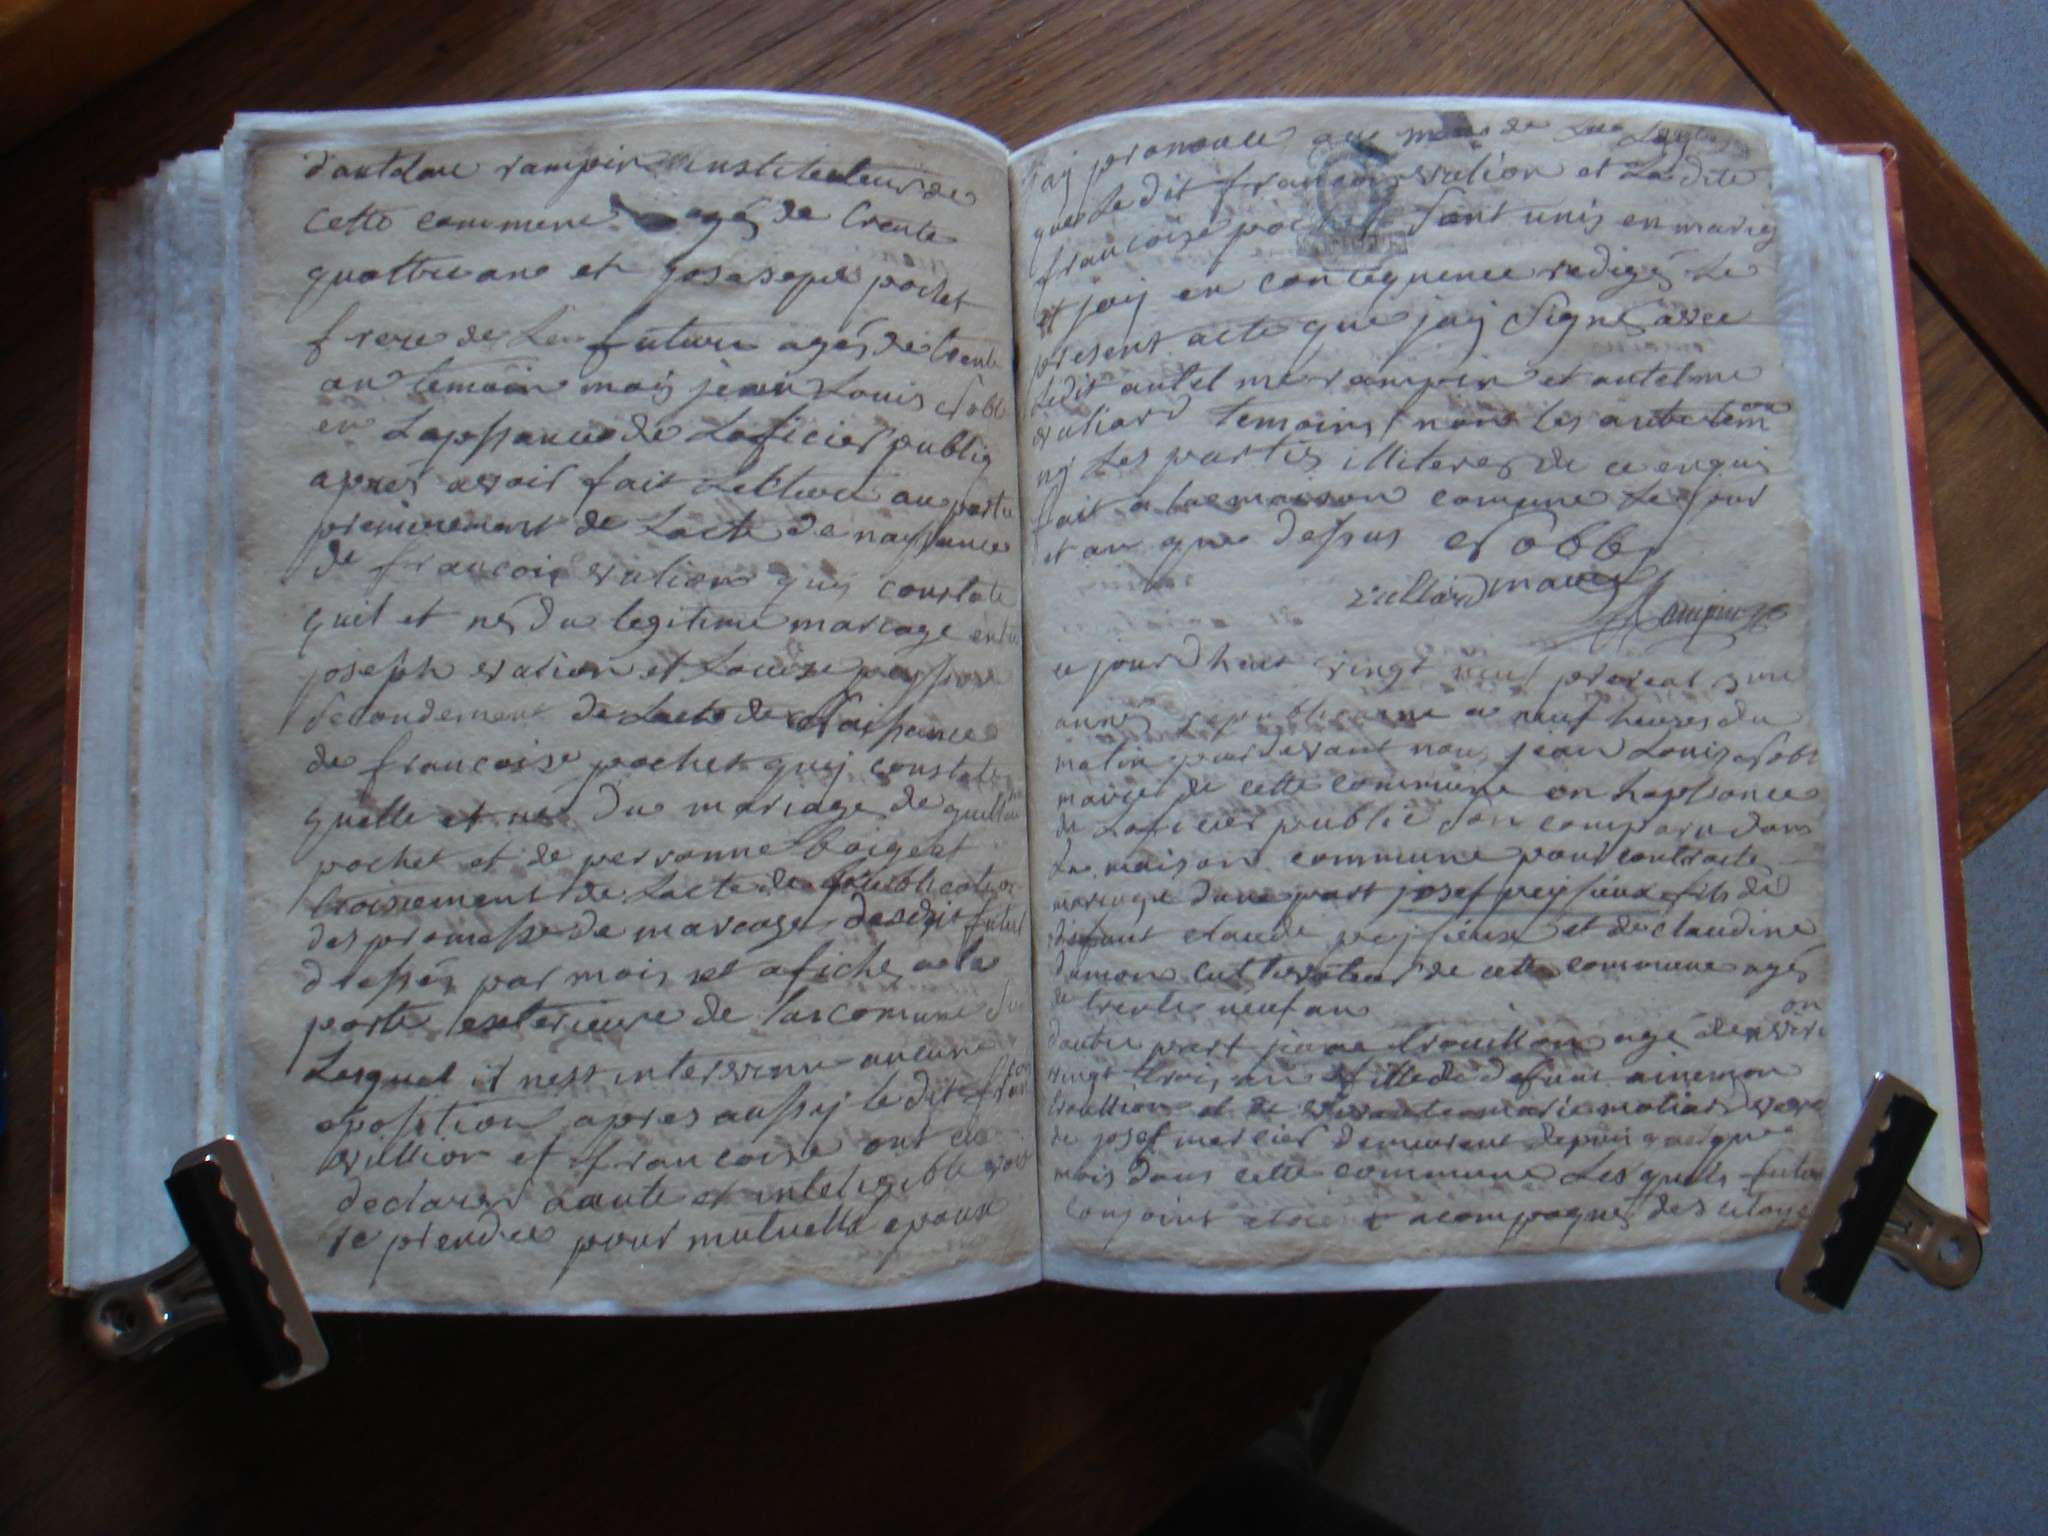 d'antelme rampin instituteur de
cette commune agé de trente
quattre ans et josseph pochet
frere de la future agés de trente
an temoin moy jean Louis
en Lapssance de Loficier public
apres avoir fait lecture au partie
premierement de Lacte de nayssance
de francois vation quy constate
quil et né du legitime mariage entre
joseph vation et Louise
secondement de Lacte de Naissance
de francoise pochet quy constate
quelle et né du mariage de
pochet et de perronne
troisiement de Lacte de publication
des promesse de mareage desdit futur
dressés par mois et afiché a la
porte exterieure de la comune
Lesquel il nest intervenu aucune
oposition apres aussy le dit
vation et francoise ont
declarer aaute et inteligible voix
se prendre pour mutuelle epoux
jay prononcé au de La Loy
que Le dit francois vation et La dite
francoise pochet sont unis en mariag
et jay en consequence redigé Le
present acte que jay signé avec
Ledit antelme rampin et antelme
valiard temoins non les autre tem
ny Les partis illiteres de ce enquis
fait a la maison comune Le jour
et an que dessus
valliard maire
Rampin
ce jourdhuit vingt neuf prereal
année republicaine a neuf heures du
matin pardevant nous jean Louis
maire de cette commune en
de Loficier public son comparu dans
la maison commune pour contracte
mariage dune part josef peyssieux fils de
defunt claude peyssieux et de claudine
dumon cultivateur de cette commune agés
de trente neuf an
on
dautre part trouillon agé de
vingt trois an fille de defunt
trouillon et de vivante marie veuve
de josef mercier demeurant depuis quelque
mois dans cette commune Les quels futur
conjoint acompagnés des citoye